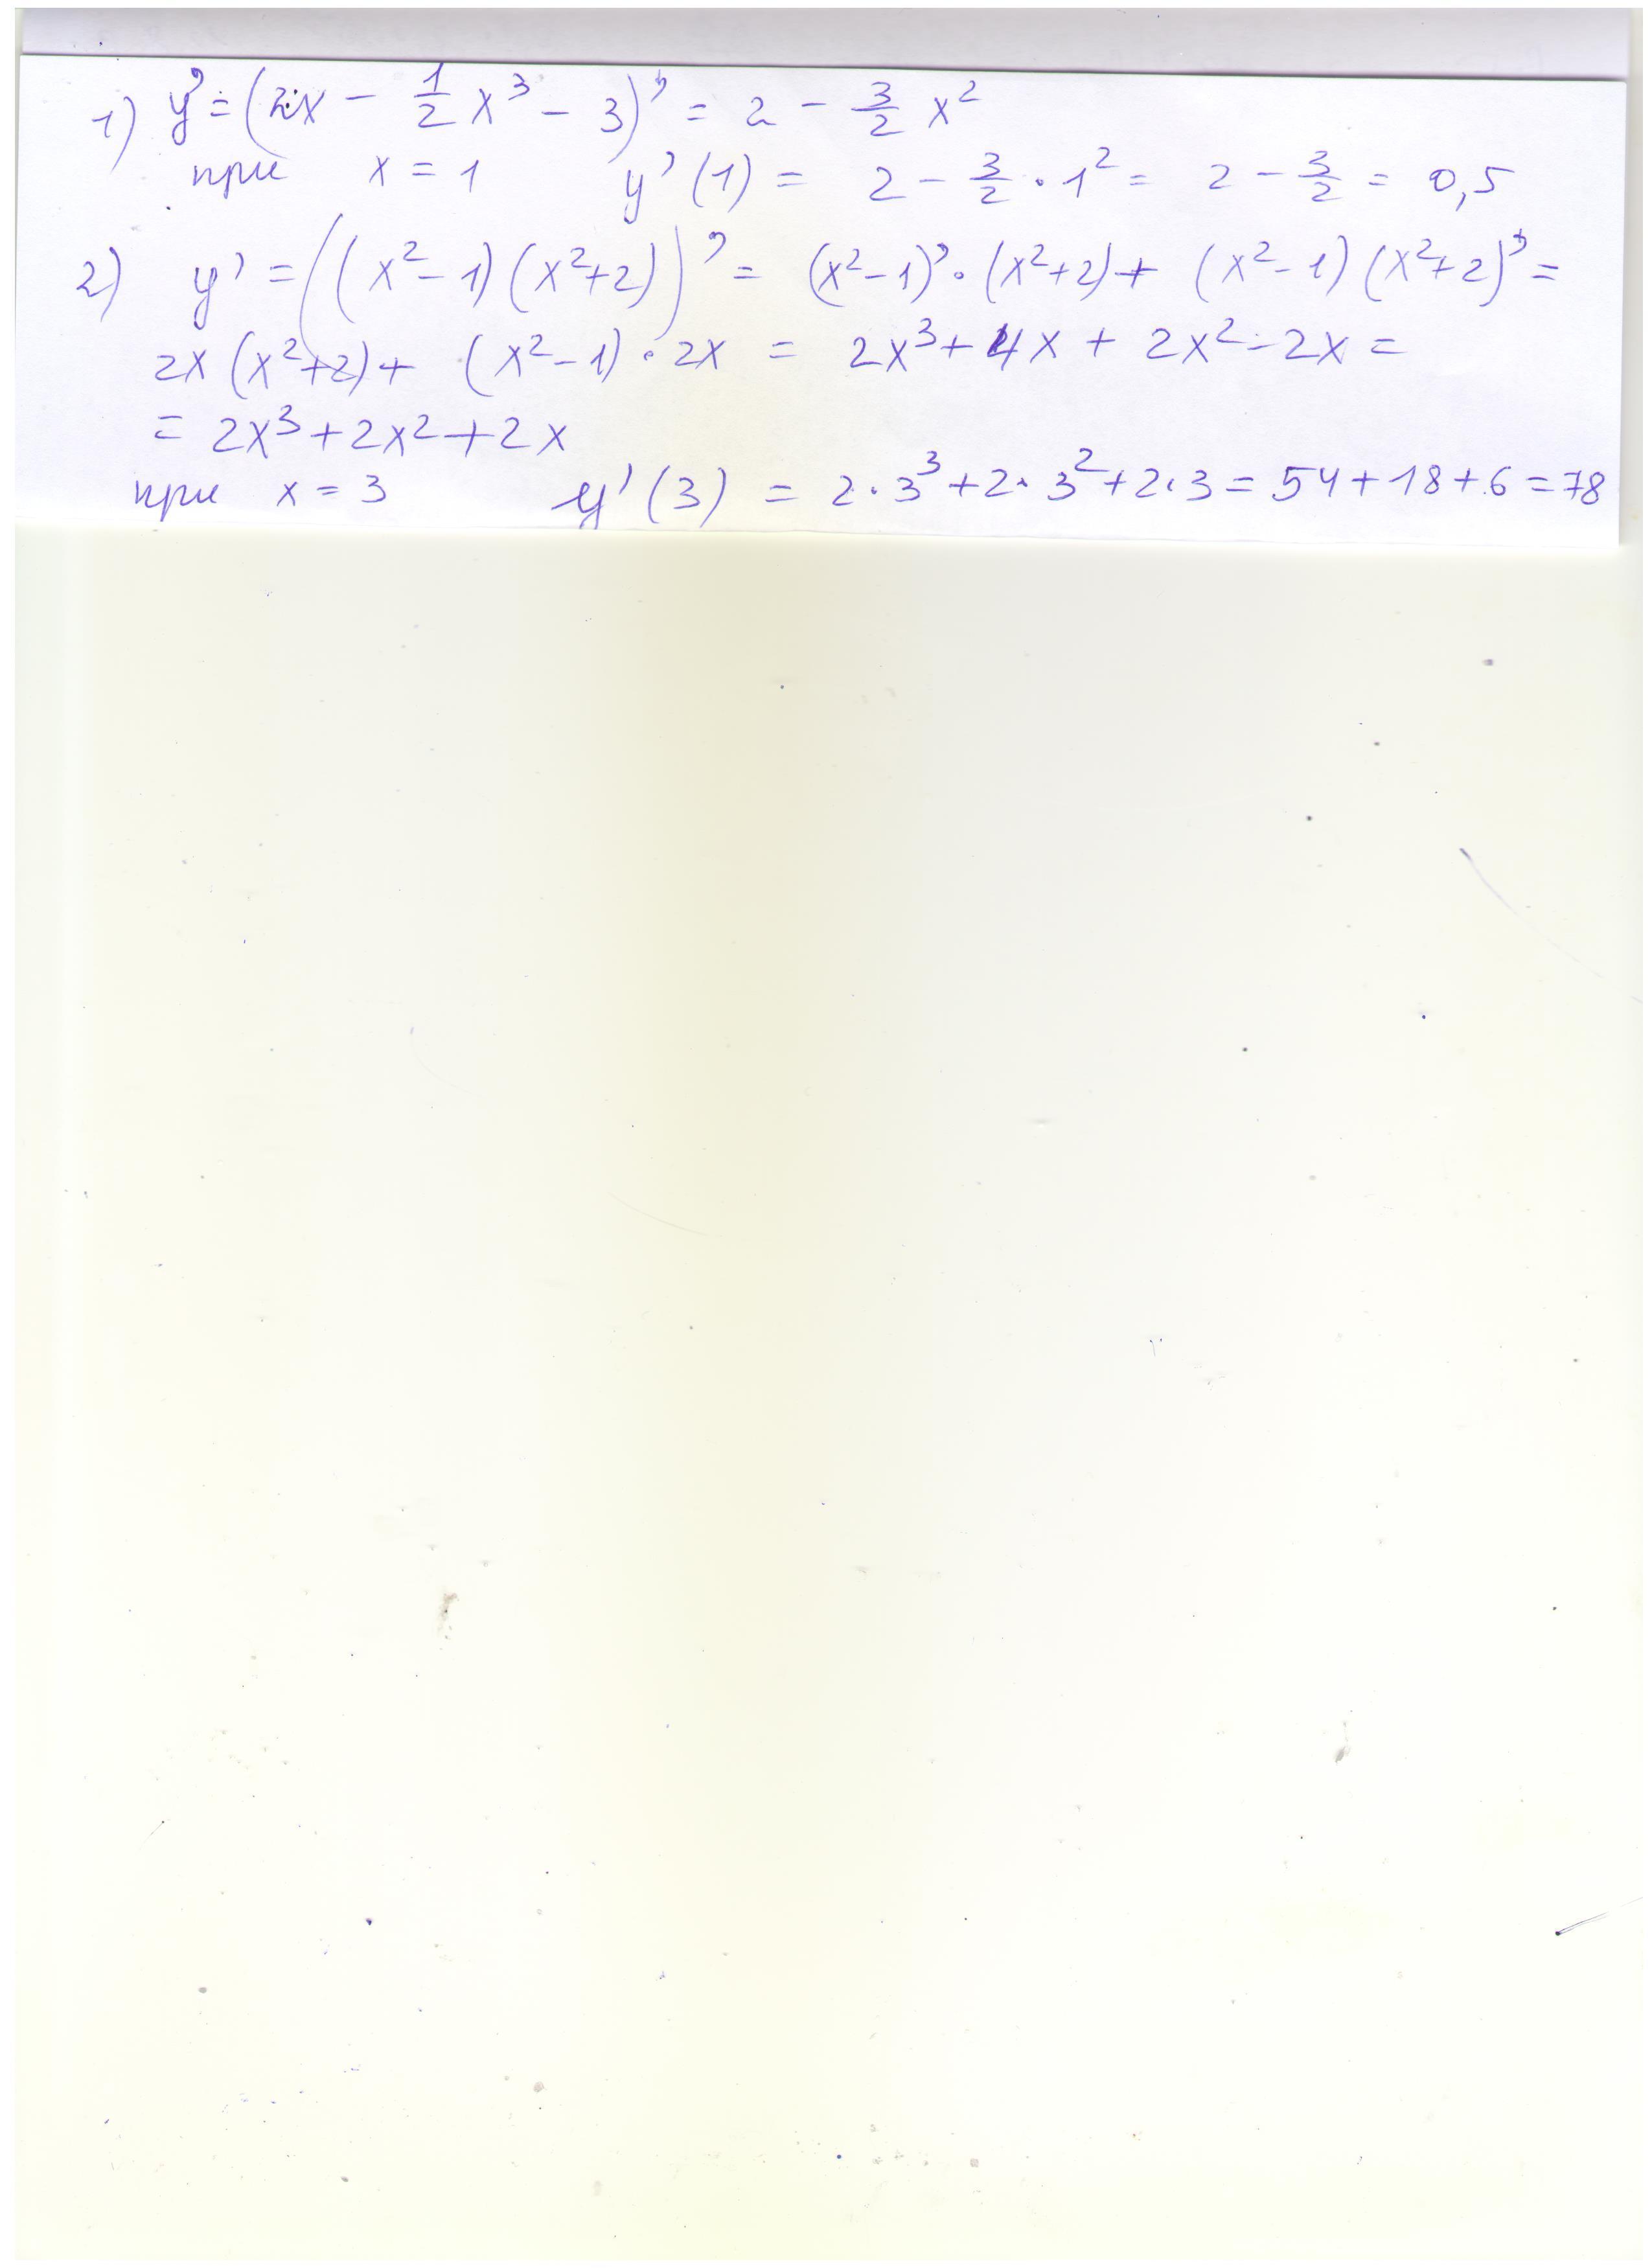 1) y' = (2x - 1/2 x³ - 3)' = 2 - 3/2 x²
при x = 1 y'(1) = 2 - 3/2 · 1² = 2 - 3/2 = 0,5
2) y' = ((x² - 1)(x² + 2))' = (x² - 1)' · (x² + 2) + (x² - 1)(x² + 2)' =
2x (x² + 2) + (x² - 1) · 2x = 2x³ + 4x + 2x² - 2x =
= 2x³ + 2x² + 2x
при x = 3 y'(3) = 2 · 3³ + 2 · 3² + 2 · 3 = 54 + 18 + 6 = 78